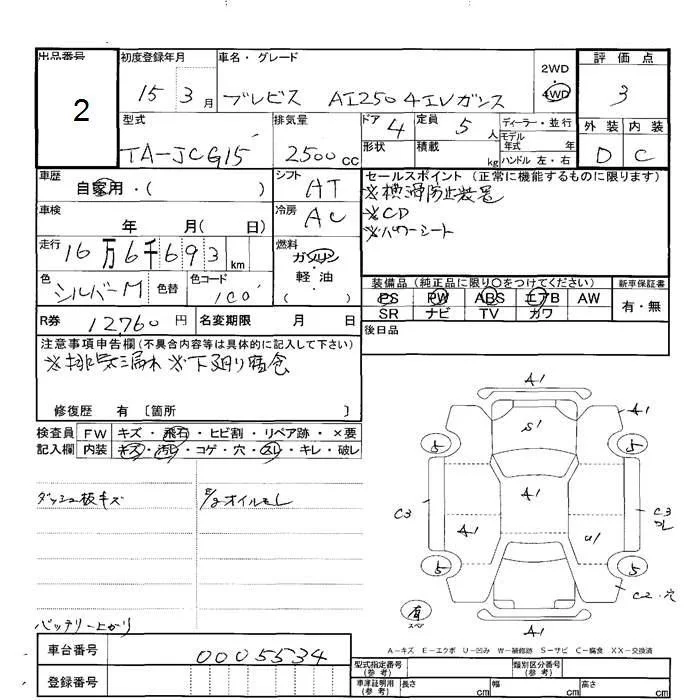 出品番号
2
初度登録年月
15 3月
車名・グレード
ブレビス AI250 4エレガンス
2WD
4WD
評価点
3
型式
TA-JCG15
排気量
2500cc
ドア
4
形状
定員
5人
積載
kg
ディーラー・並行
モデル年式 年
ハンドル 左・右
外装 内装
D C
車歴
自家用・( )
シフト
AT
セールスポイント(正常に機能するものに限ります)
※横滑防止装置
※CD
※パワーシート
車検
年 月( 日)
冷房
AC
走行
16万6千693km
燃料
ガソリン
軽油
( )
色
シルバーM
色替
色コード
1C0
装備品(純正品に限り〇をつけてください)
PS PW ABS エアB AW
SR ナビ TV カワ
新車保証書
有・無
R券 12,760円
名変期限 月 日
後日品
注意事項申告欄(不具合内容等は具体的に記入して下さい)
※排気漏れ ※下廻り腐食
修復歴 有 〔箇所 〕
検査員記入欄
FW キズ・飛石・ヒビ割・リペア跡・×要
内装 キズ・汚レ・コゲ・穴・スレ・キレ・破レ
ダッシュ板キズ
E/gオイルもし
バッテリー上がり
A1
A1
S1
5
5
A1
C3
C3
コレ
A1
U1
5
5
C2・穴
有
スペア
A1
A-キズ E-エクボ U-凹み W-補修跡 S-サビ C-腐食 XX-交換済
車台番号
0005534
登録番号
型式指定番号(参考)
類別区分番号(参考)
車庫証明用(参考)
長さ cm
幅 cm
高さ cm